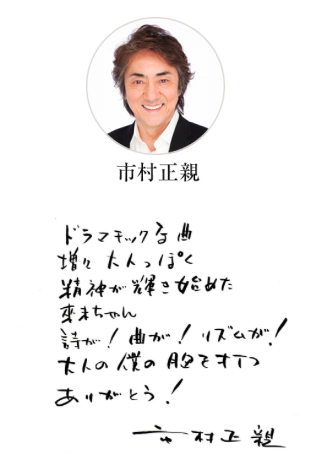 市村正親
ドラマチックな曲
増々大人っぽく
精神が輝き始めた
來未ちゃん
詩が！曲が！リズムが！
大人の僕の胸をオイつ
ありがとう！
市村正親